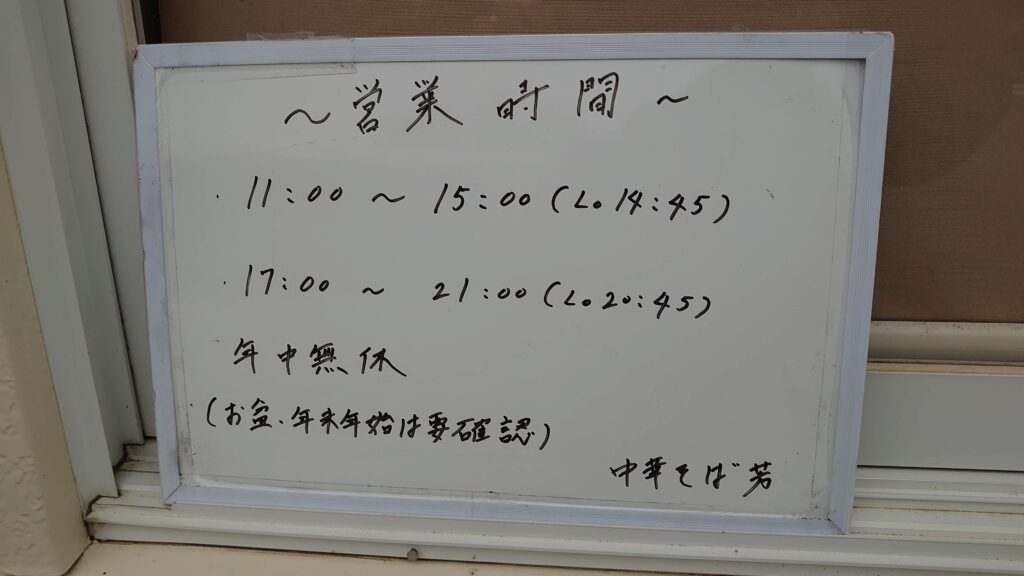 ~営業時間~
・11:00 ~ 15:00(Lo 14:45)
・17:00 ~ 21:00(Lo 20:45)
年中無休
(お盆、年末年始は要確認)
中華そば 芳